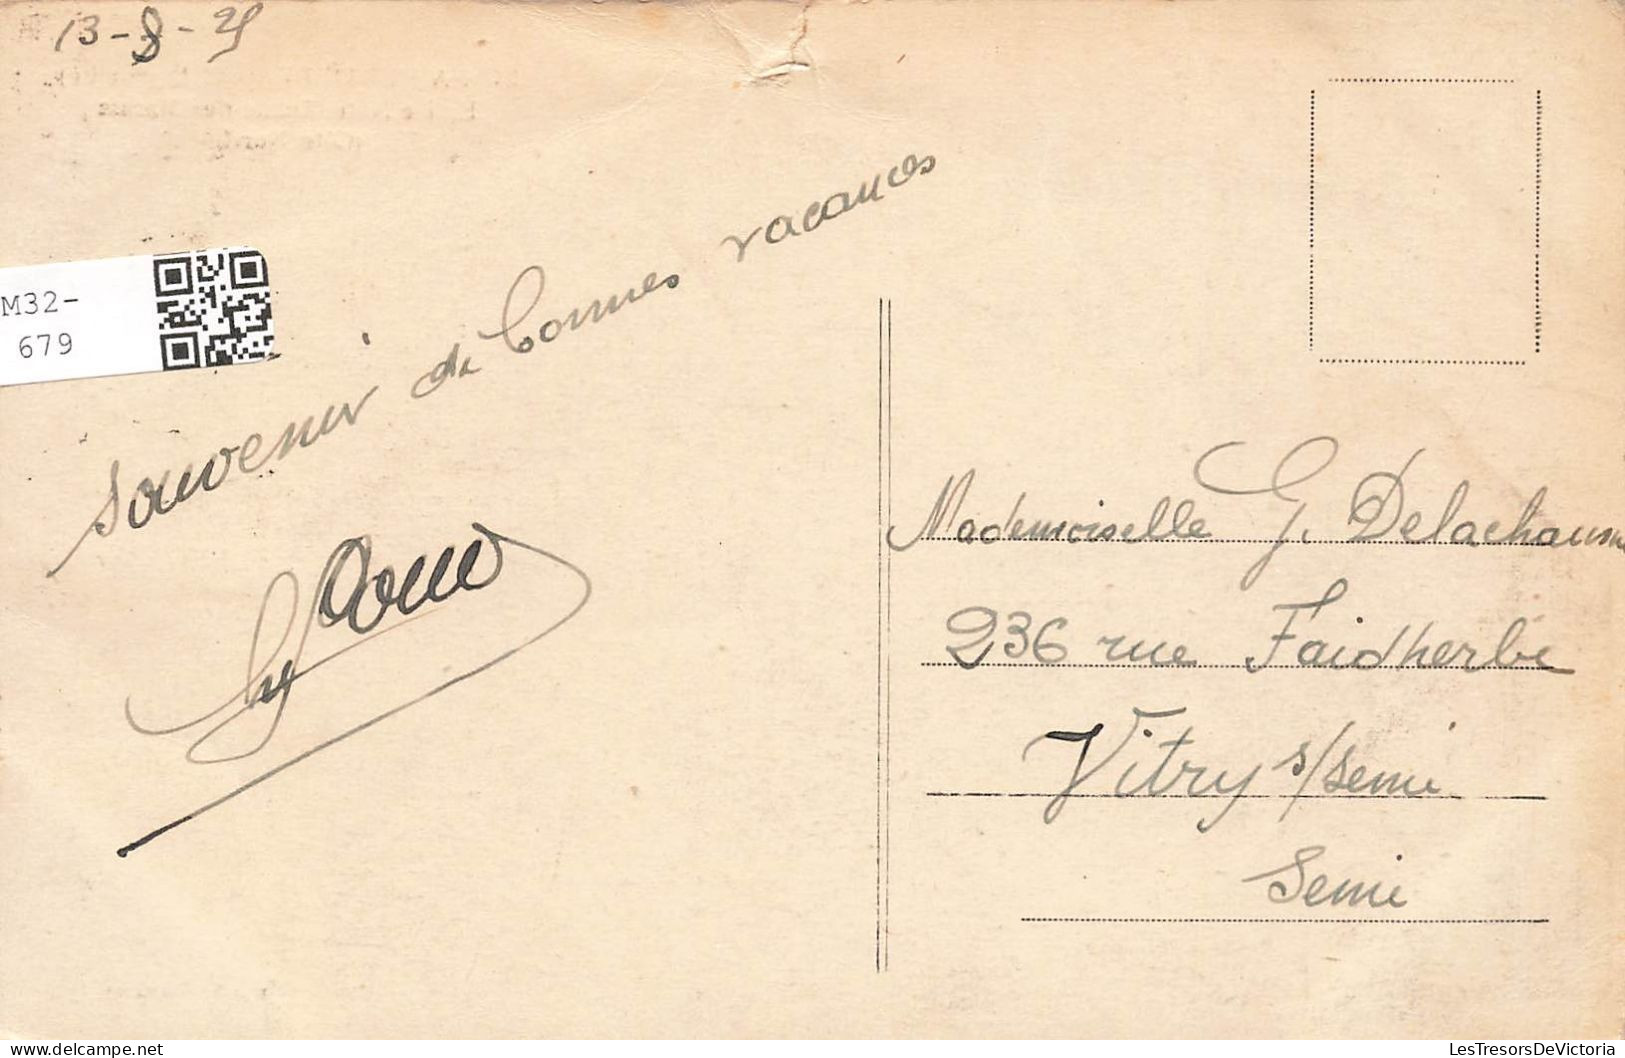 13-8-25
M32-
679
Souvenir de bonnes vacances
Mademoiselle G. Delachaussée
236 rue Faidherbe
Vitry s/seine
Seine
LesTresorsDeVictoria